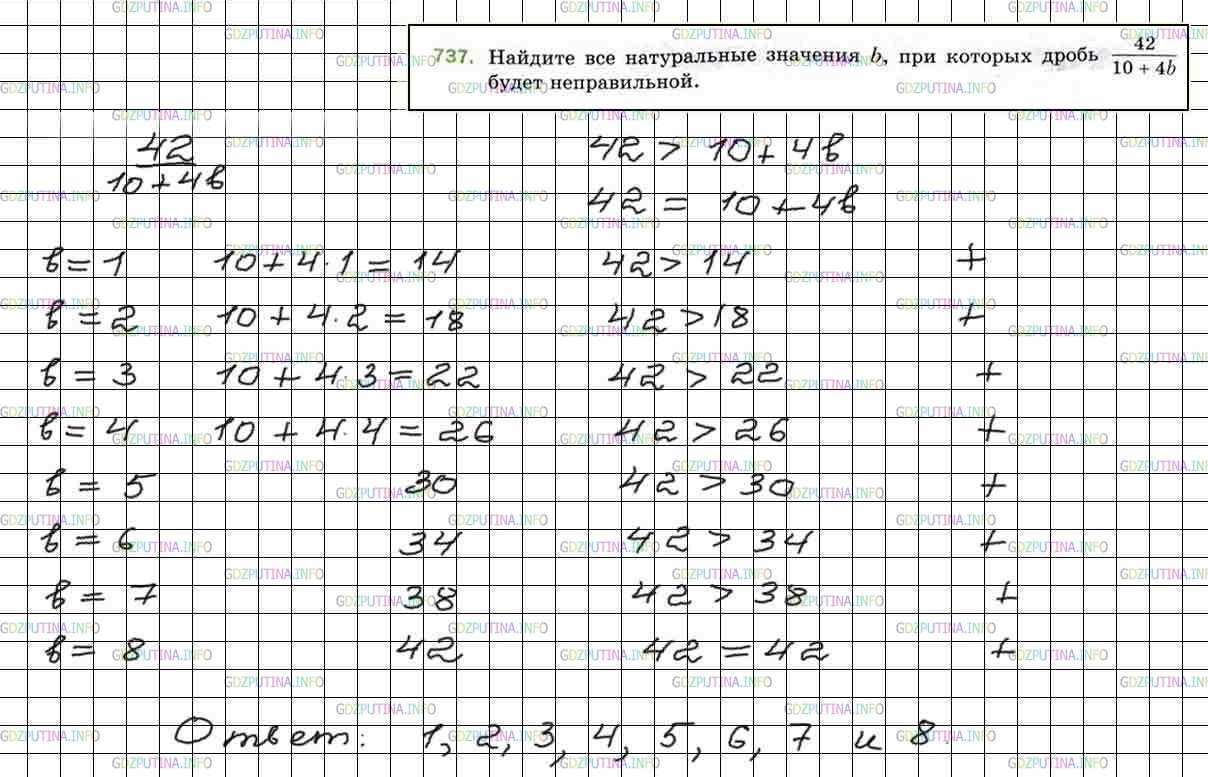 737. Найдите все натуральные значения b, при которых дробь 42/(10 + 4b)
будет неправильной.
42/(10+4в) 42 > 10+4в
42 = 10+4в
в=1 10+4·1=14 42>14 +
в=2 10+4·2=18 42>18 +
в=3 10+4·3=22 42>22 +
в=4 10+4·4=26 42>26 +
в=5 30 42>30 +
в=6 34 42>34 +
в=7 38 42>38 +
в=8 42 42=42 +
Ответ: 1, 2, 3, 4, 5, 6, 7 и 8.
GDZPUTINA.INFO